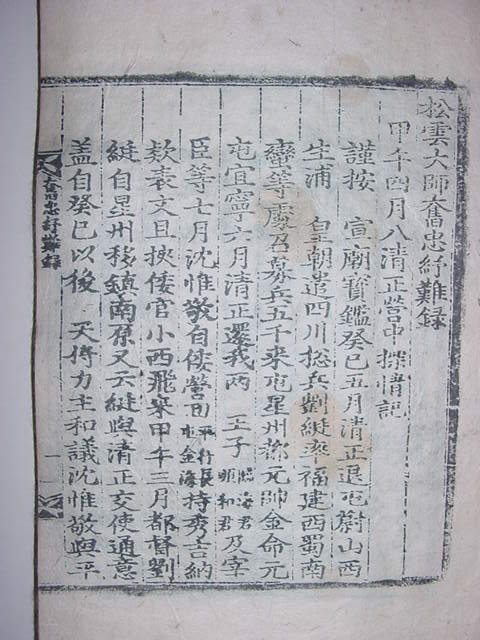 松雲大師奮忠紓難録
甲午四月入清正營中探情記
謹按 宣廟寶鑑癸巳五月清正退屯蔚山西
生浦 皇朝遣四川総兵劉綎率福建西蜀南
蠻等處召募兵五千来屯星州称元帥金命元
屯宜寧六月清正還我两 王子臨海君順和君及宰
臣等七月沈惟敬自倭營回平行長屯金海持秀吉納
欵表文且挾倭官小西飛来甲午三月都督劉
綎自星州移鎮南原又云綎與清正交使通意
盖自癸巳以後 天将力主和議沈惟敬與平
奮忠紓難録
一